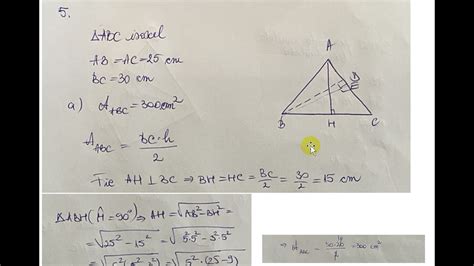 5.
ΔABC isoscel
AB = AC = 25 cm
BC = 30 cm
a) A_ABC = 300 cm²
A_ABC = BC·h / 2
Fie AH ⊥ BC ⇒ BH = HC = BC/2 = 30/2 = 15 cm
A
D
B
H
C
ΔABH (Ĥ = 90°) ⇒ AH = √AB² - BH² =
= √25² - 15² = √5²·5² - 3²·5² =
= √5²(5² - 3²) = √5²·(25-9) =
⇒ A_ABC = = 300 cm²